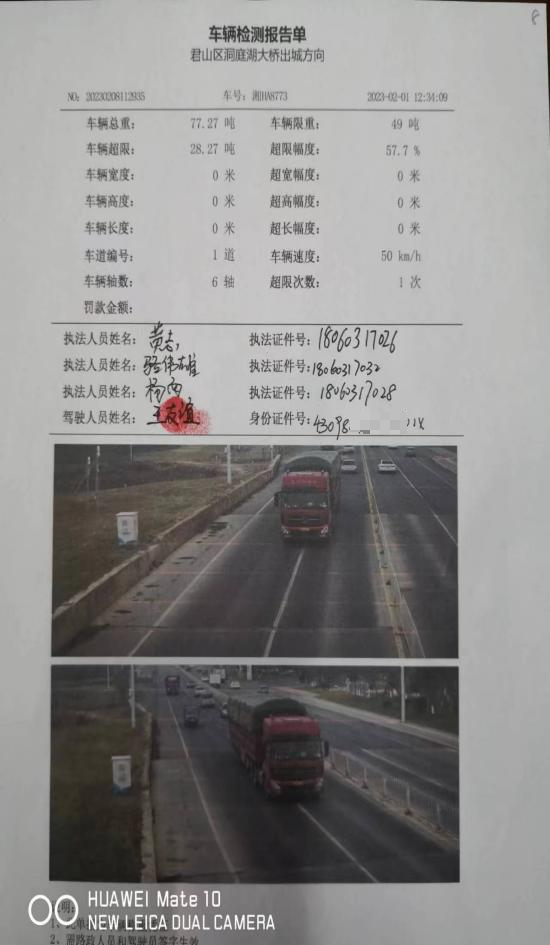 8
车辆检测报告单
君山区洞庭湖大桥出城方向
NO: 20230208112935 车号: 湘HA8773 2023-02-01 12:34:09
车辆总重: 77.27 吨 车辆限重: 49 吨
车辆超限: 28.27 吨 超限幅度: 57.7 %
车辆宽度: 0 米 超宽幅度: 0 米
车辆高度: 0 米 超高幅度: 0 米
车辆长度: 0 米 超长幅度: 0 米
车道编号: 1 道 车辆速度: 50 km/h
车辆轴数: 6 轴 超限次数: 1 次
罚款金额:
执法人员姓名: 黄 执法证件号: 18060317026
执法人员姓名: 骆伟雄 执法证件号: 18060317032
执法人员姓名: 杨 执法证件号: 18060317028
驾驶人员姓名: 王友谊 身份证件号: 43098
说明:
HUAWEI Mate 10
NEW LEICA DUAL CAMERA
2、需路政人员和驾驶员签字生效